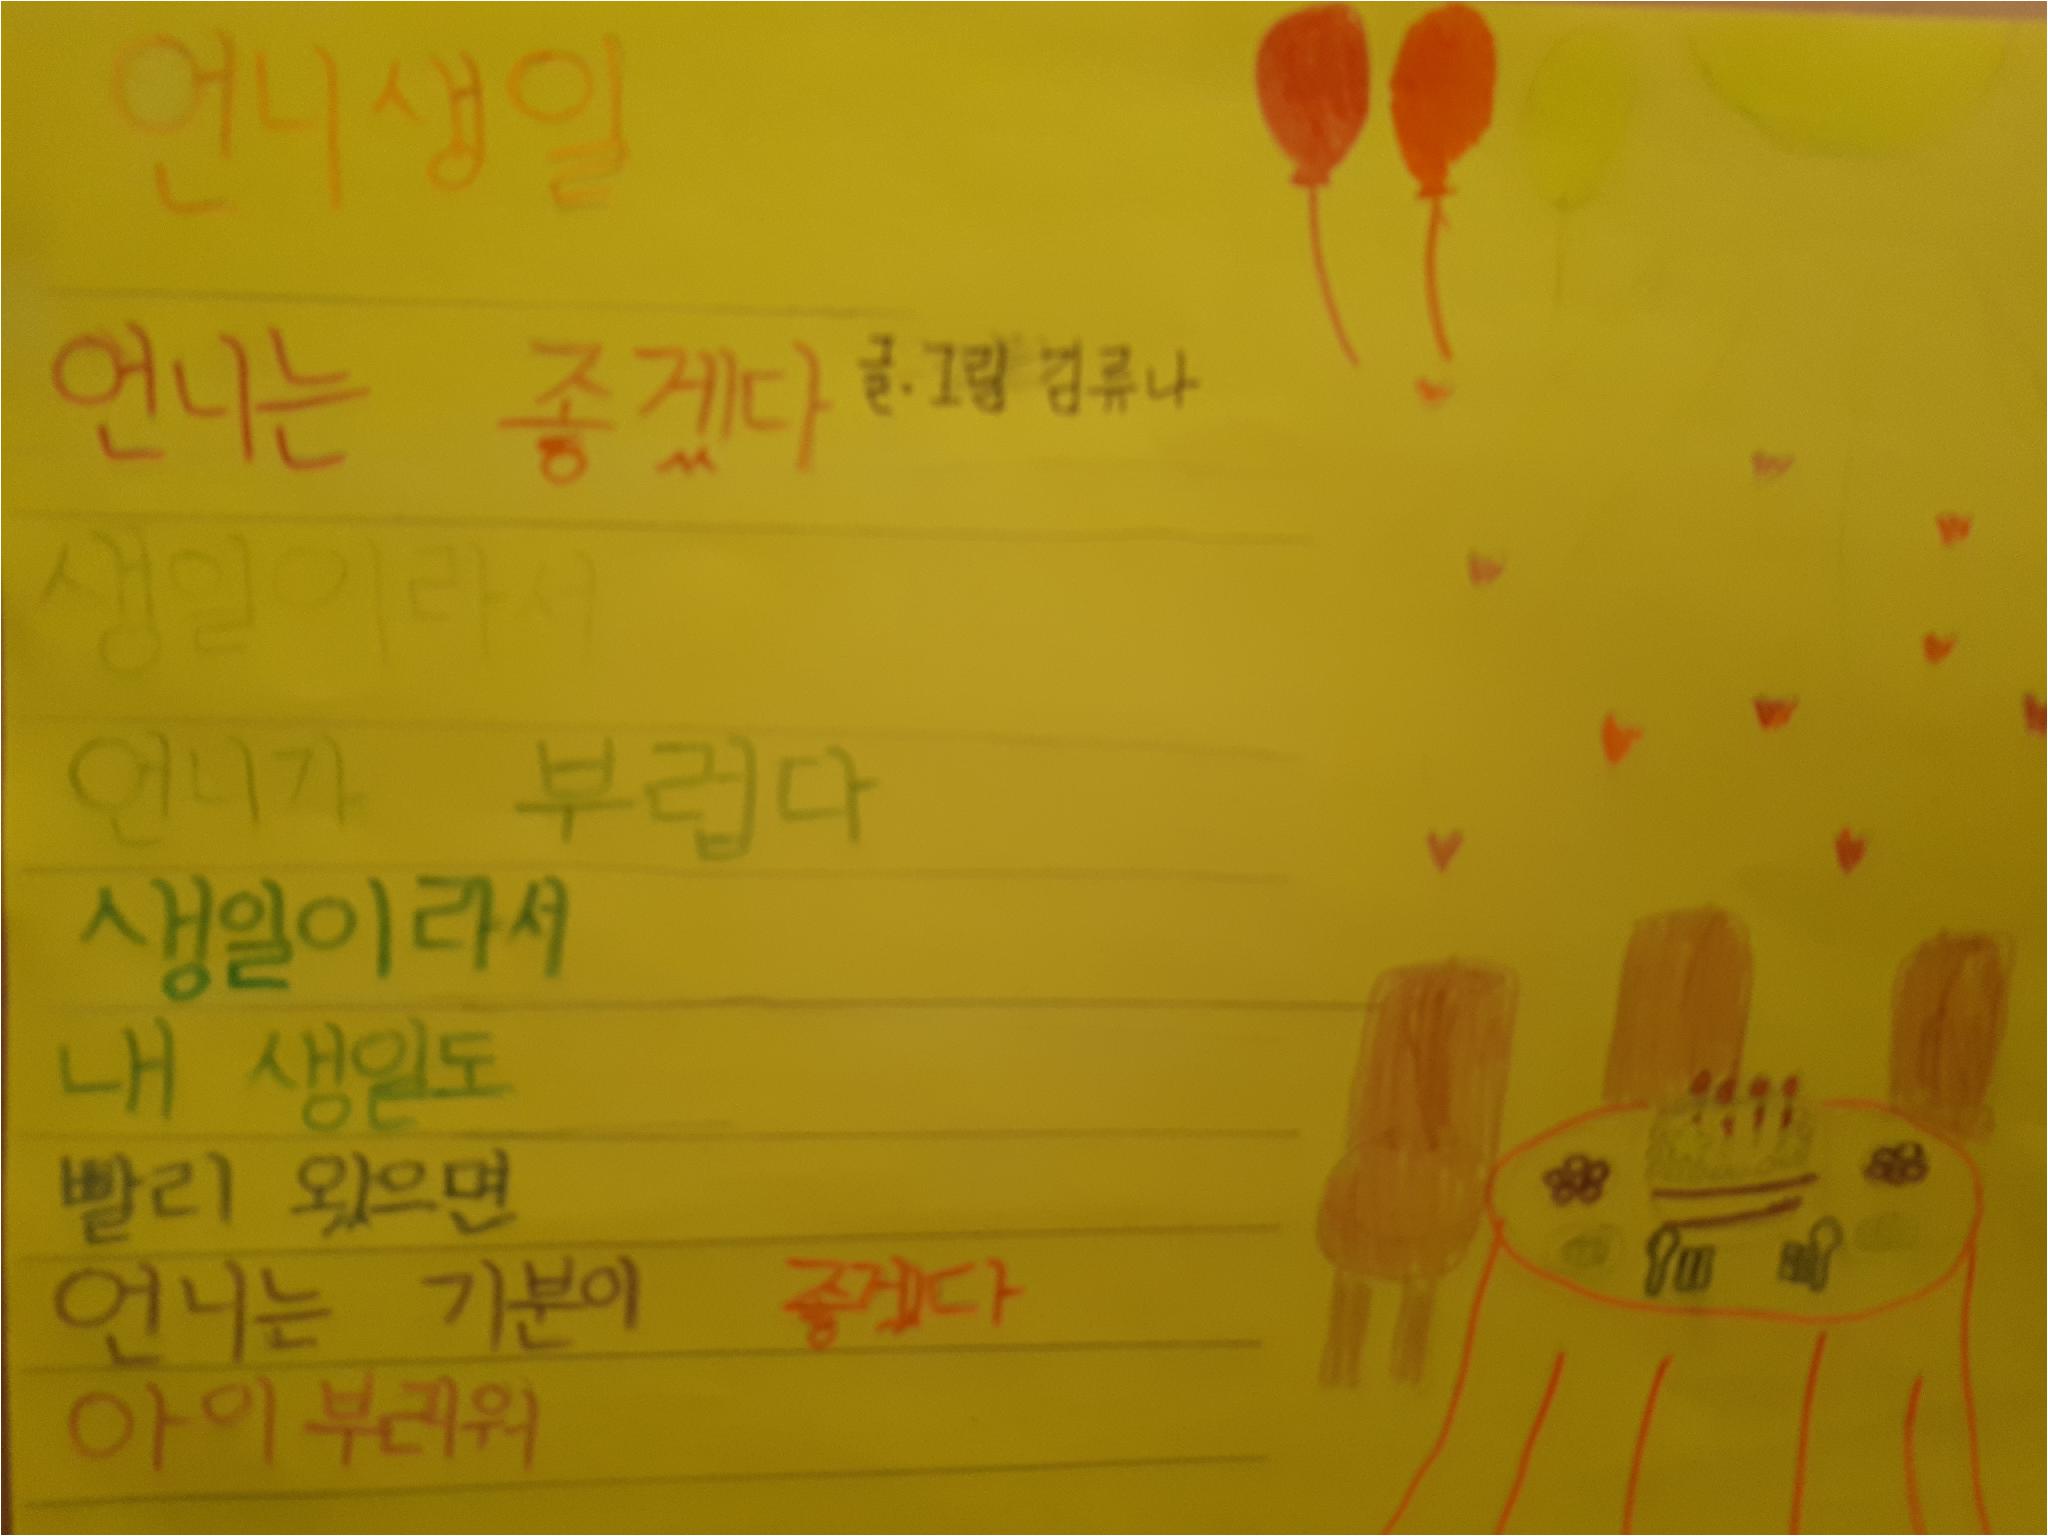 언니생일
언니는 좋겠다 글.그림 김류나
생일이라서
언니가 부럽다
생일이라서
내 생일도
빨리 왔으면
언니는 기분이 좋겠다
아이 부러워